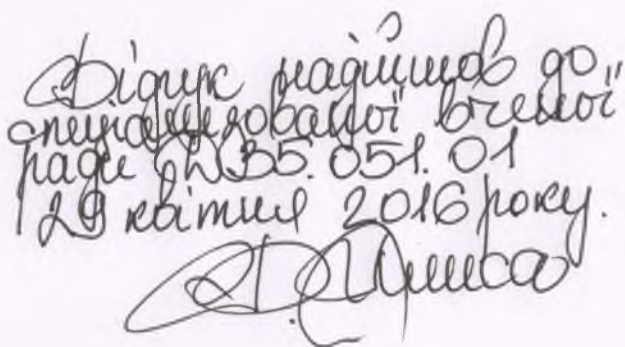 Відгук надійшов до
спеціалізованої вченої
ради Д 35.051.01
квітня 2016 року.